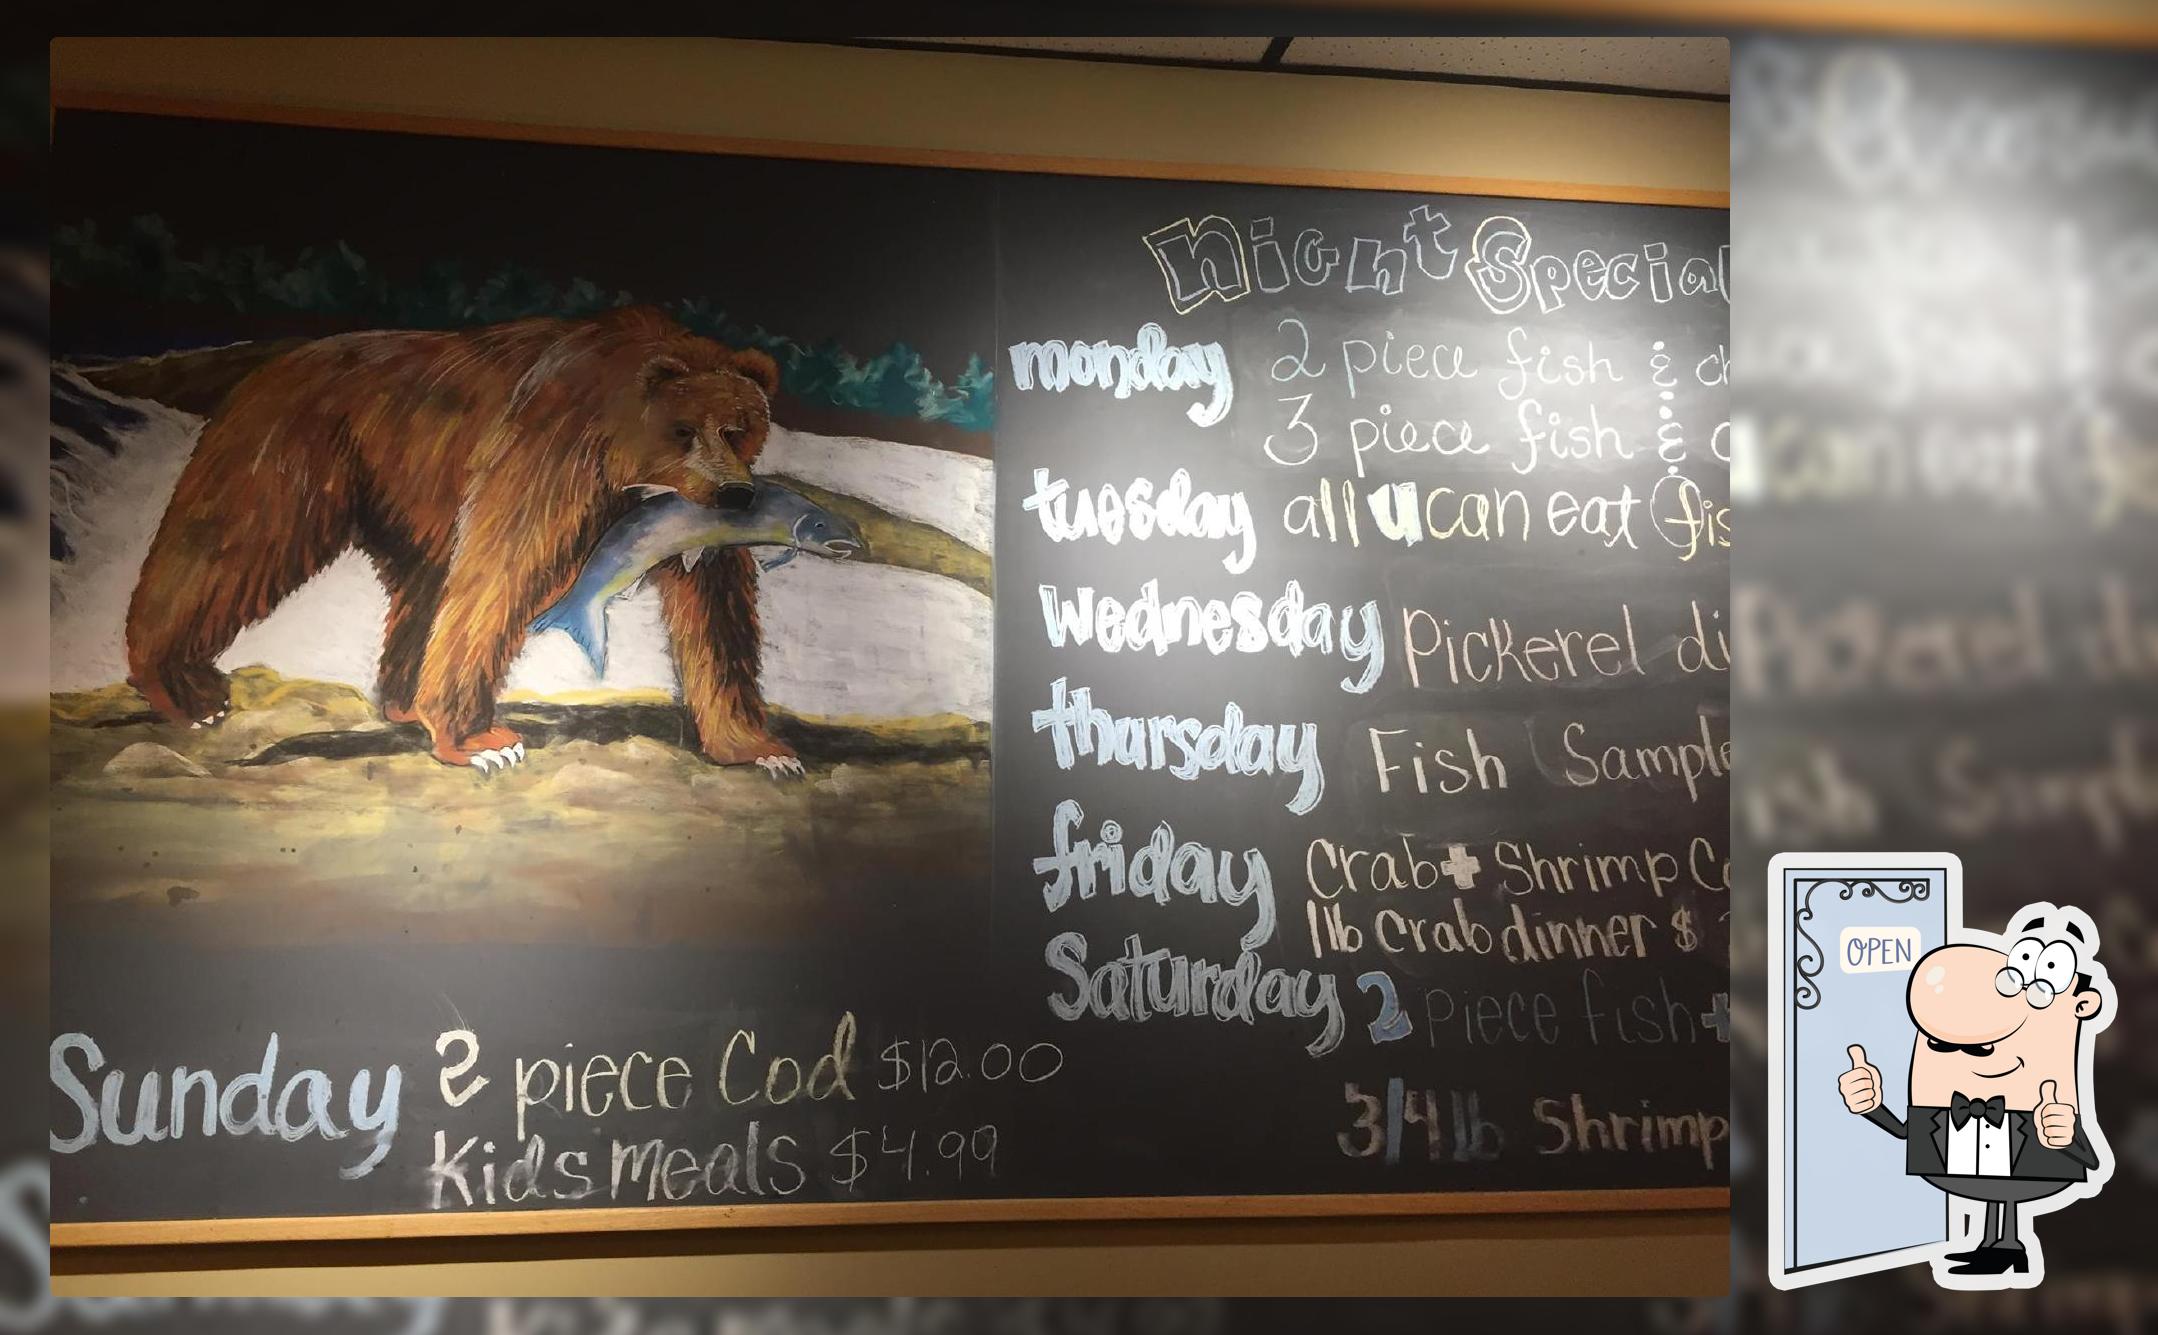 Night Special
monday 2 piece fish & ch
3 piece fish & c
tuesday all u can eat fis
Wednesday Pickerel di
thursday Fish Sample
friday Crab + Shrimp Co
1lb Crab dinner $
Saturday 2 piece fish +
3/4 lb Shrimp
Sunday 2 piece Cod $12.00
Kids meals $4.99
OPEN